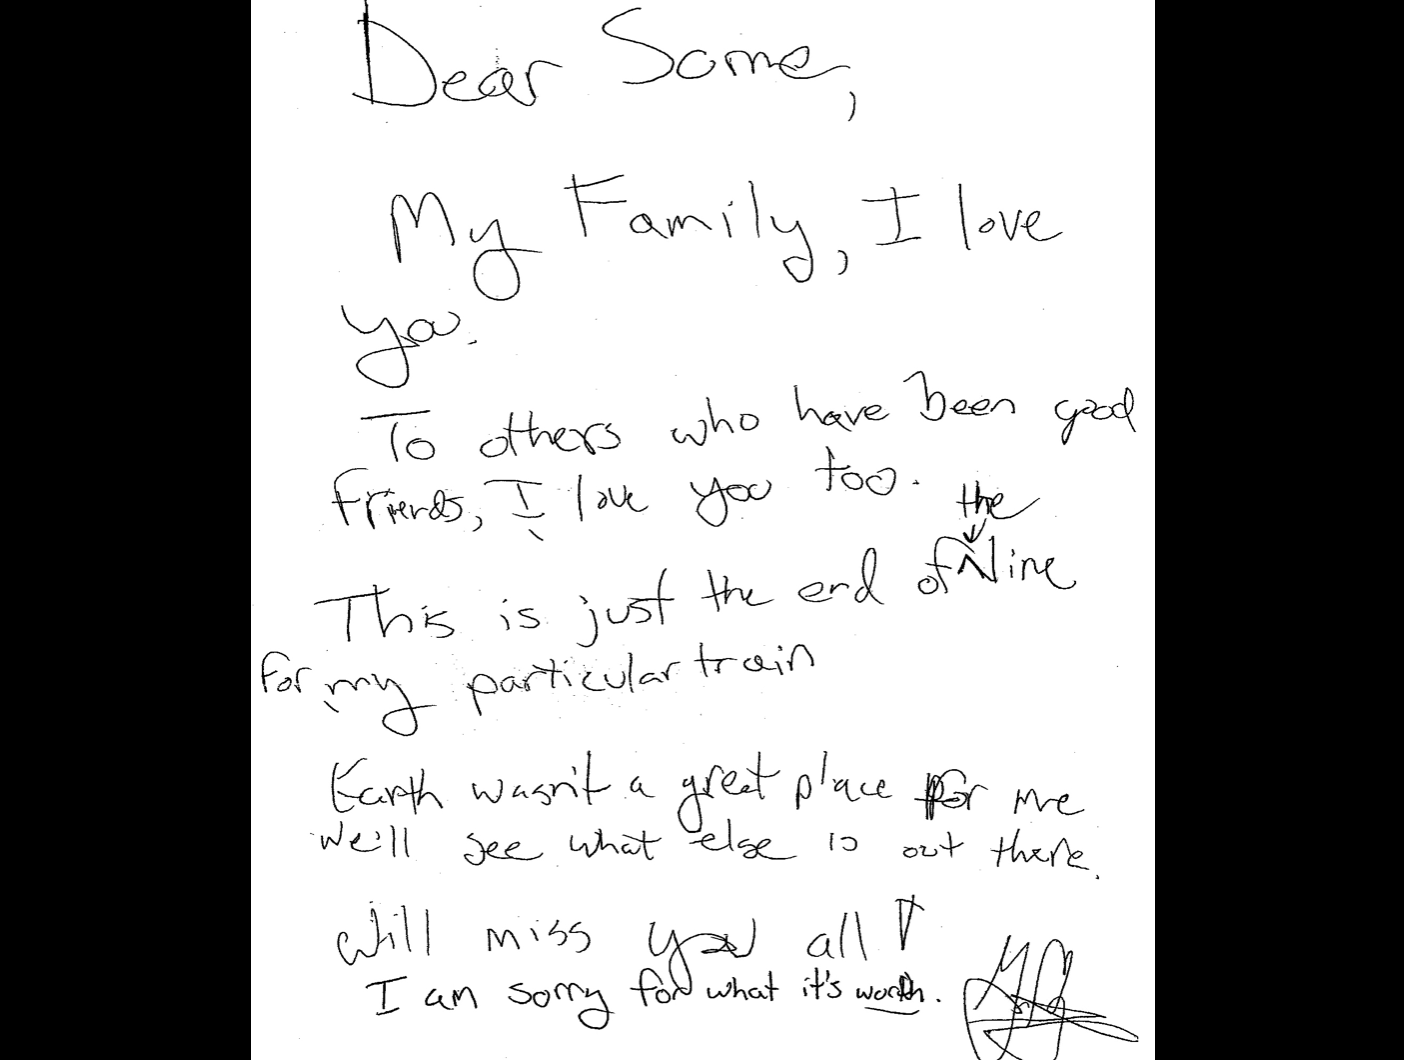 Dear Some,
My Family, I love
you.
To others who have been good
friends, I love you too.
the
This is just the end of line
for my particular train
Earth wasn't a great place for me
we'll see what else is out there.
will miss you all!
I am sorry for what it's worth.